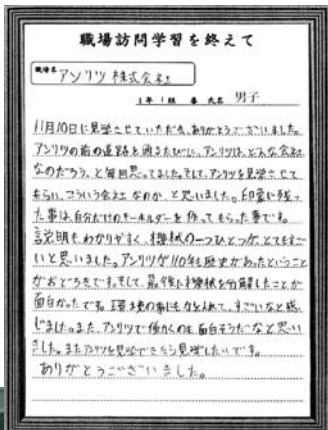 職場訪問学習を終えて
職場名 アンリツ 株式会社
1年 1組 番 氏名 男子
11月10日に見学させていただき、ありがとうございました。
アンリツの前の道路を通るたびに、アンリツは、どんな会社
なのだろう、と毎回思ってました。そして、アンリツを見学させて
もらい、こういう会社なのか、と思いました。印象に残っ
た事は、自分だけのキーホルダーを作ってもらった事です。
説明もわかりやすく、機械の一つひとつが、とてもすご
いと思いました。アンリツが110年も歴史があったということ
がおどろきです。そして、最後に機械を分解したことが
面白かったです。環境の事にも力を入れて、すごいなと感
じました。また、アンリツで働くのも面白そうだなと思い
ました。またアンリツを見学できたら見学したいです。
ありがとうございました。